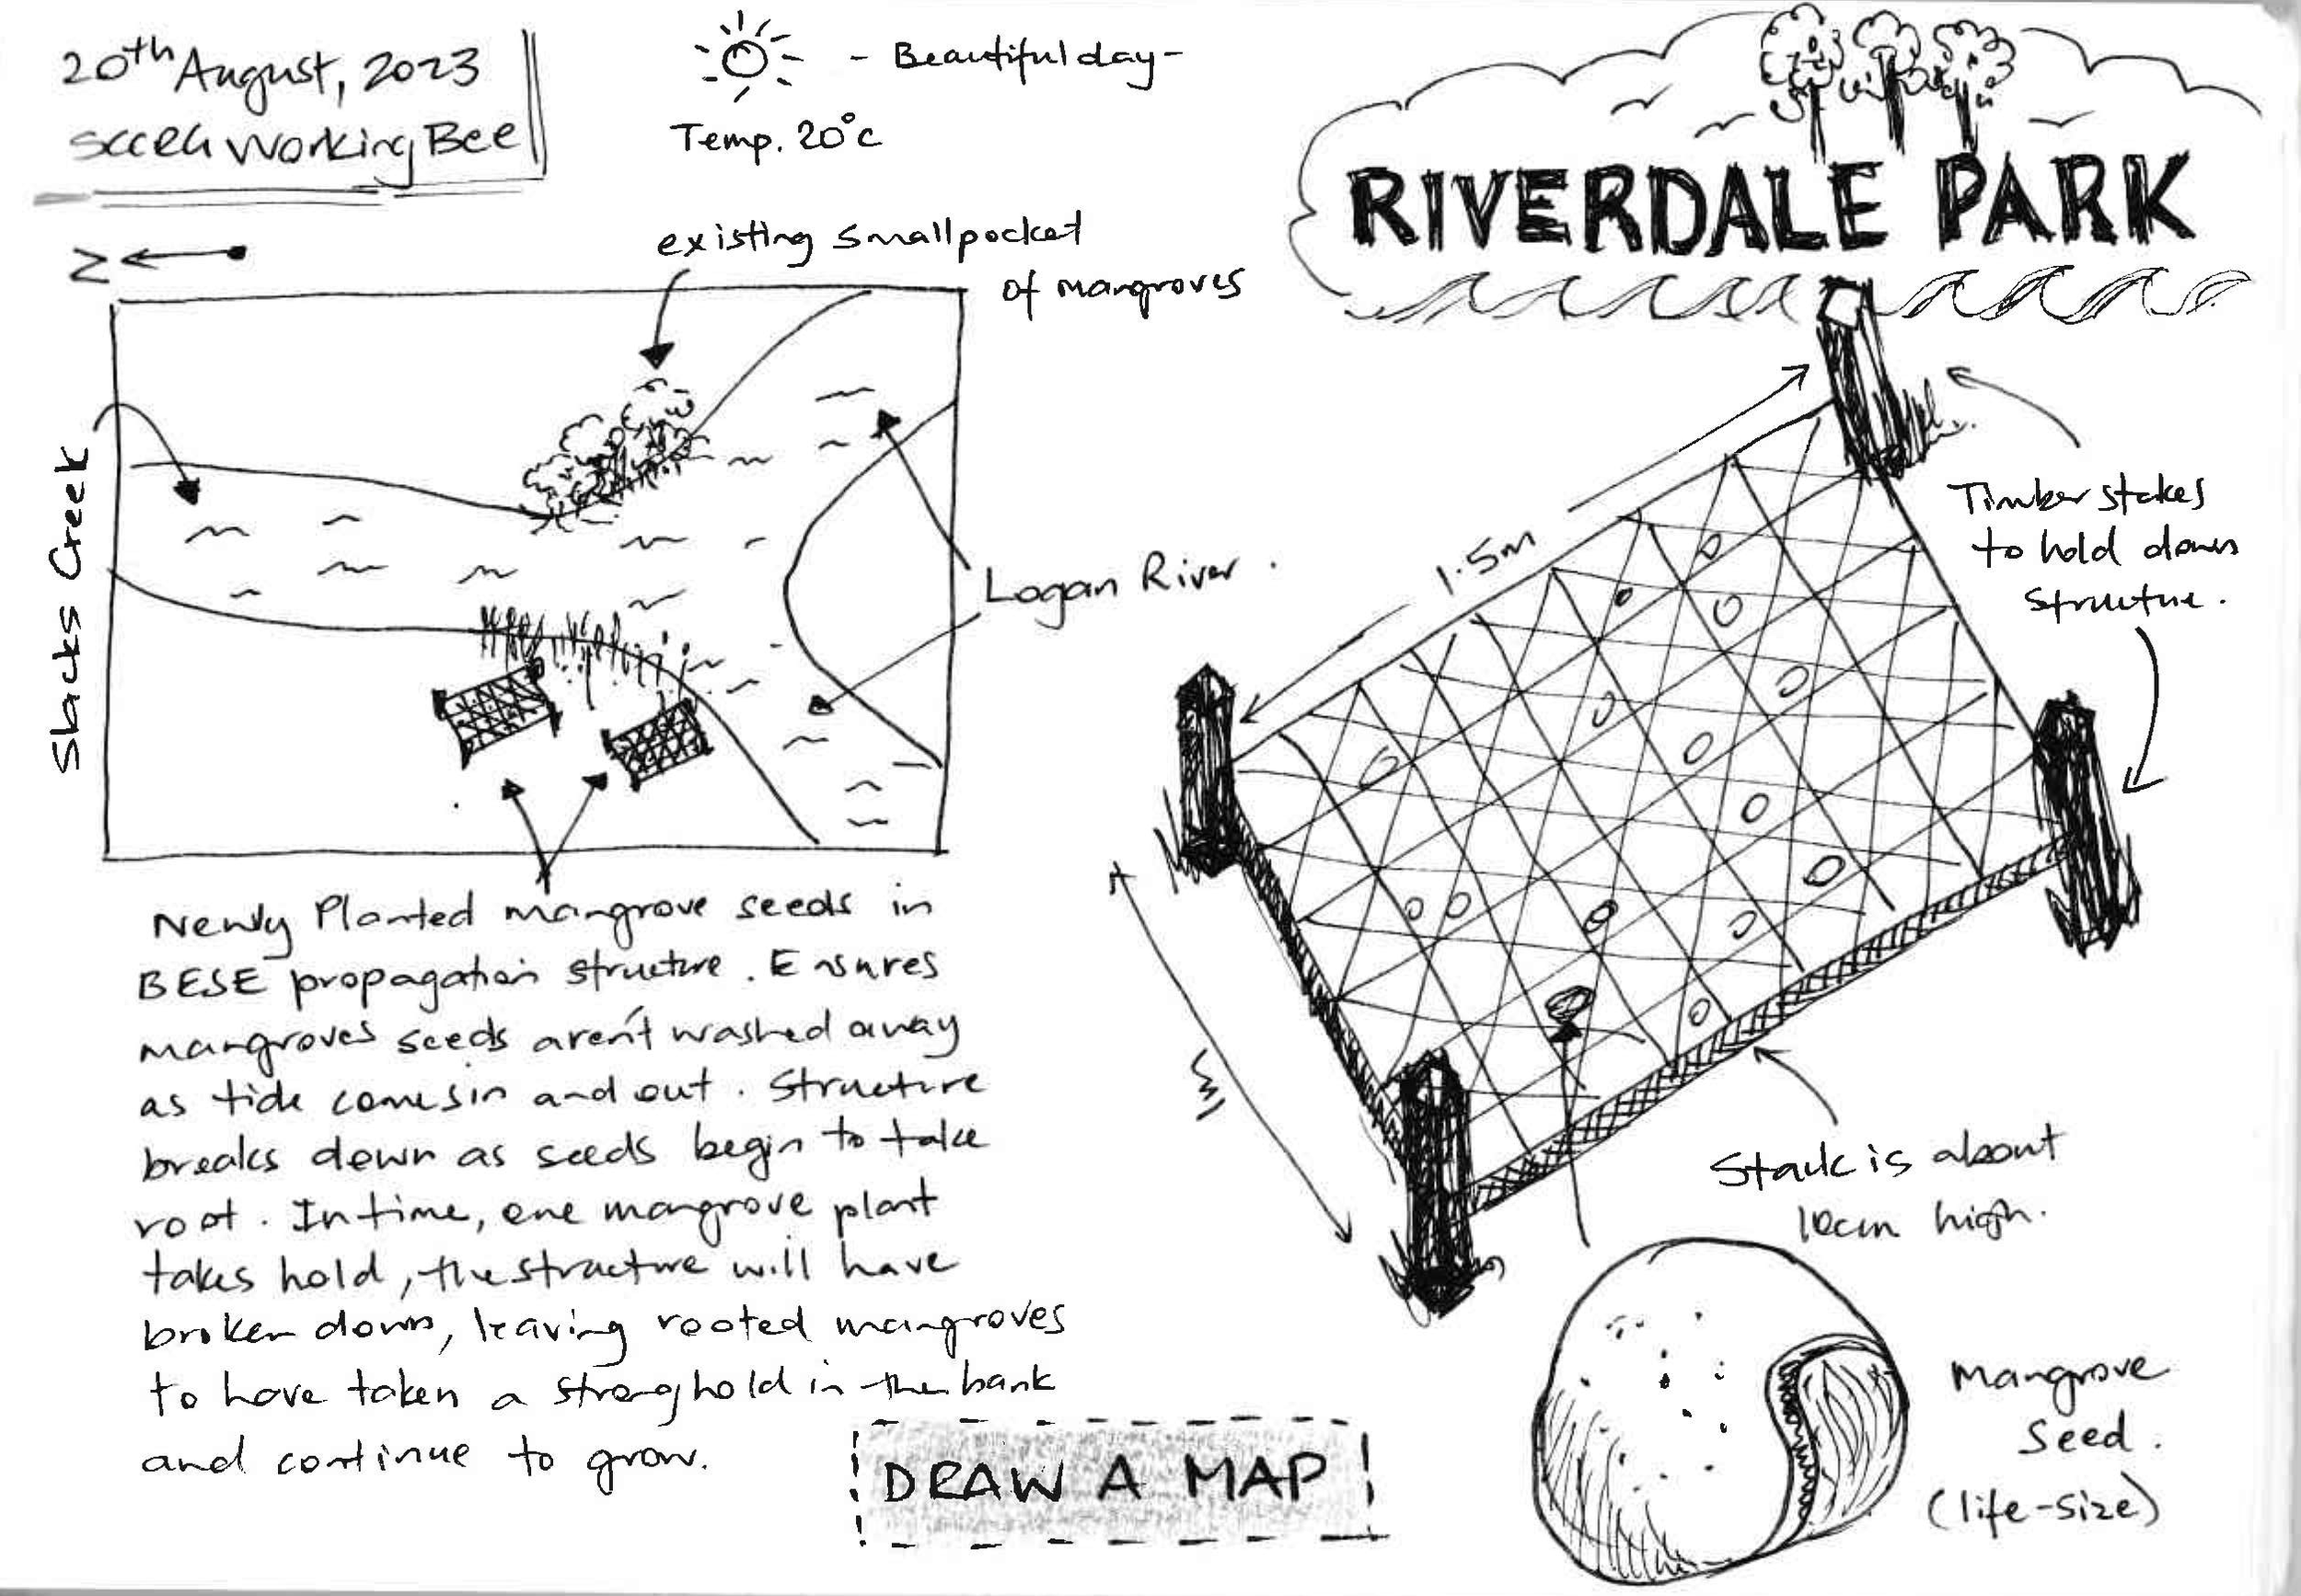 20th August, 2023
SCCEG Working Bee
- Beautiful day -
Temp. 20°c
RIVERDALE PARK
N
existing small pocket
of mangroves
Slacks Creek
Logan River.
1.5m
Timber stakes
to hold down
structure.
1m
Newly Planted mangrove seeds in
BESE propagation structure. Ensures
mangroves seeds aren't washed away
as tide comes in and out. Structure
breaks down as seeds begin to take
root. In time, one mangrove plant
takes hold, the structure will have
broken down, leaving rooted mangroves
to have taken a stronghold in the bank
and continue to grow.
Stack is about
10cm high.
Mangrove
Seed.
(life-size)
DRAW A MAP